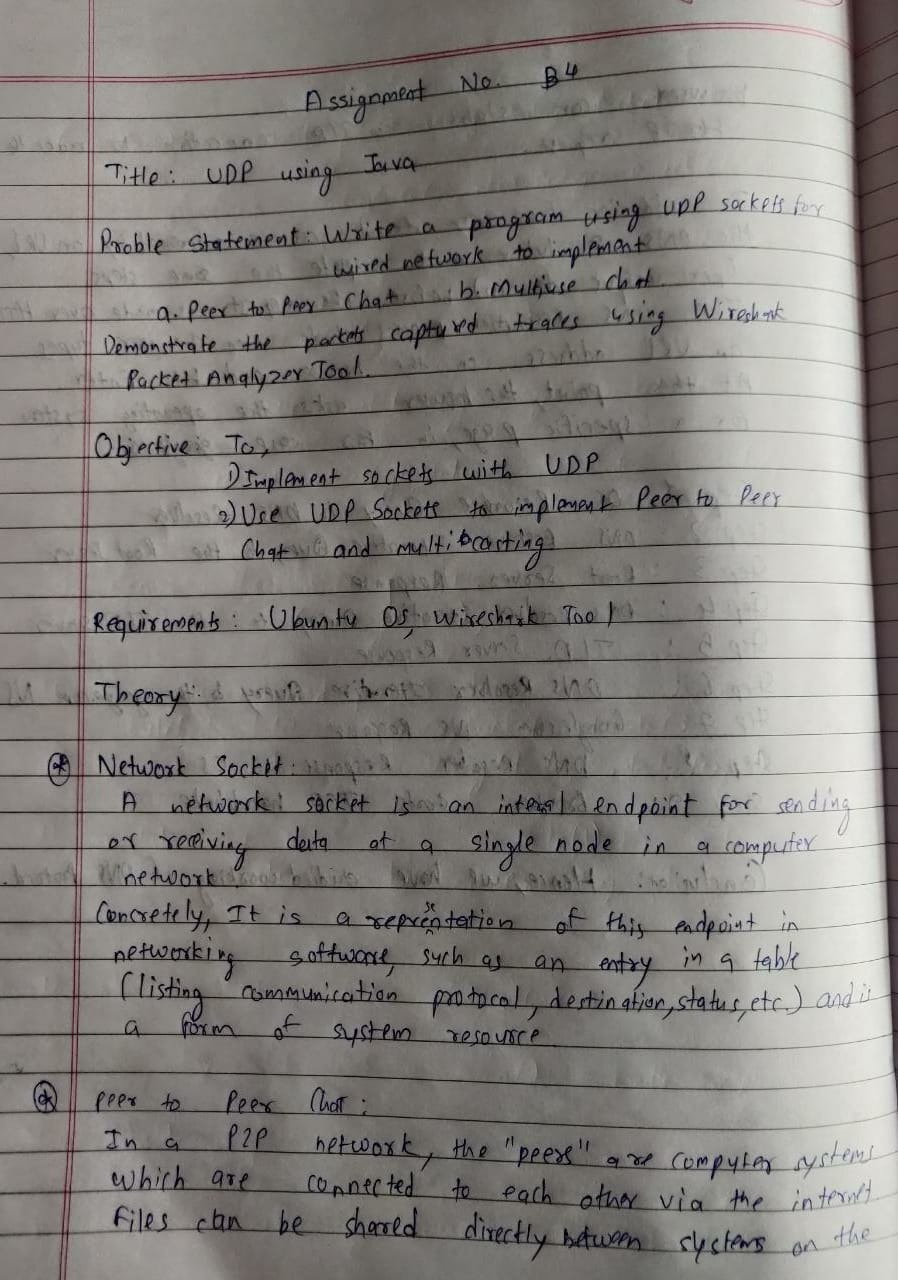 Assignment No. B4
Title: UDP using Java
Proble Statement: Write a program using UDP sockets for
wired network to implement
a. Peer to Peer Chat b. Multiuse chat.
Demonstrate the packets captured traces using Wireshark
Packet Analyzer Tool.
Objective: To,
1) Implement sockets with UDP
2) Use UDP Sockets to implement Peer to Peer
Chat and multicasting
Requirements: Ubuntu OS, Wireshark Tool
Theory:
* Network Socket:
A network socket is an internal endpoint for sending
or receiving data at a single node in a computer
network
Concretely, It is a representation of this endpoint in
networking software, such as an entry in a table
(listing communication protocol, destination, status, etc.) and is
a form of system resource
* peer to Peer Chat:
In a P2P network, the "peers" are computer systems
which are connected to each other via the internet.
Files can be shared directly between systems on the